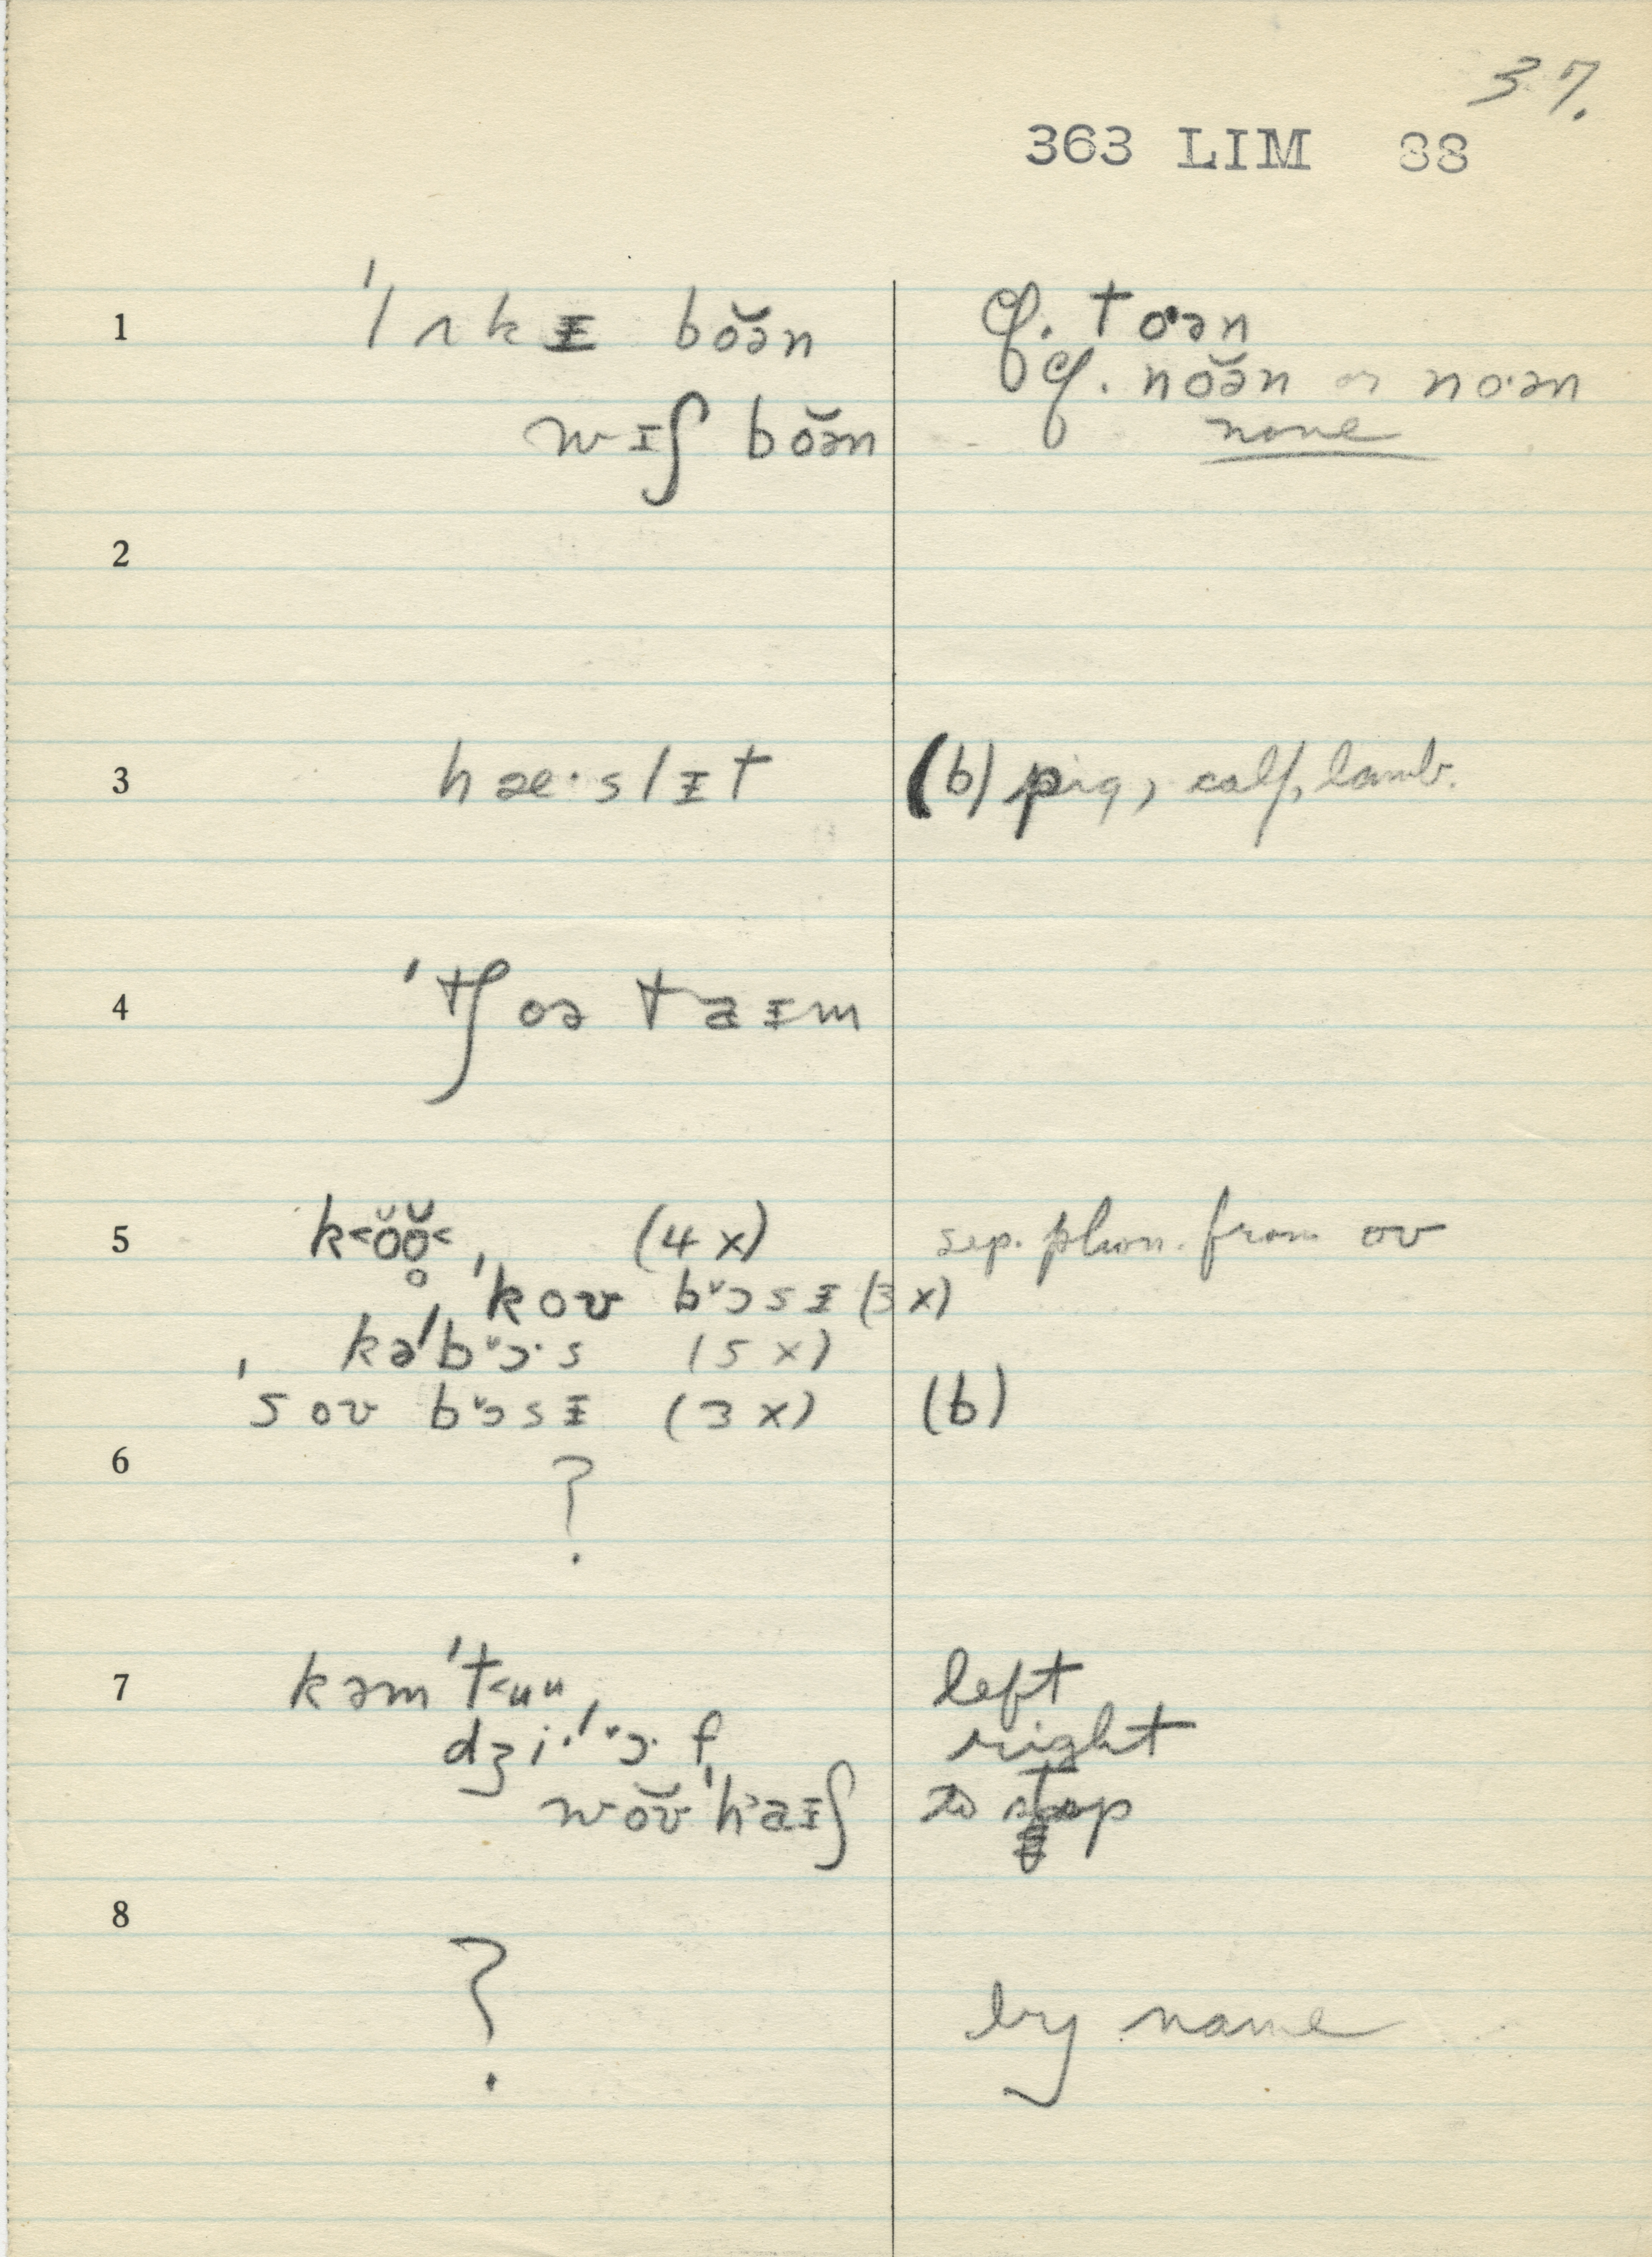 37.
363 LIM 88
1 ˈlʌkᵻ bŏə̆n cf. toˑən
cf. nŏə̆n or noˑən
wɪʃ bŏə̆n none
2
3 hæˑslᵻt (b) pig, calf, lamb.
4 ˈtʃoə taᵻm
5 k˂ŏŏ̥˂, (4x) sep. phon. from oʊ
ˈkoʊ bᶷɔsᵻ (3x)
kəˈbᶷɔˑs (5x)
ˈsoʊ bᶷɔsᵻ (3x) (b)
6 ?
7 kəmˈt˂uu, left
dʒiˑˈᶷɔˑf, right
wŏʊ̆ˈhaᵻʃ to stop
8
? by name